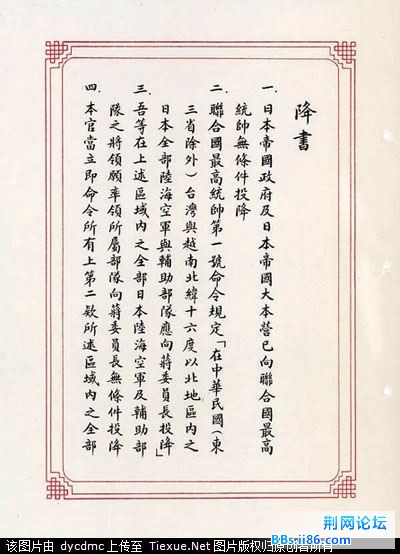 降書
一．日本帝國政府及日本帝國大本營已向聯合國最高
統帥無條件投降
二．聯合國最高統帥第一號命令規定「在中華民國（東
三省除外）台灣與越南北緯十六度以北地區內之
日本全部陸海空軍與輔助部隊應向蔣委員長投降」
三．吾等在上述區域內之全部日本陸海空軍及輔助部
隊之將領願率領所屬部隊向蔣委員長無條件投降
四．本官當立即命令所有上第二款所述區域內之全部
该图片由 dycdmc 上传至 Tiexue.Net 图片版权归原创者所有
荆网论坛
BBs.ii86.com